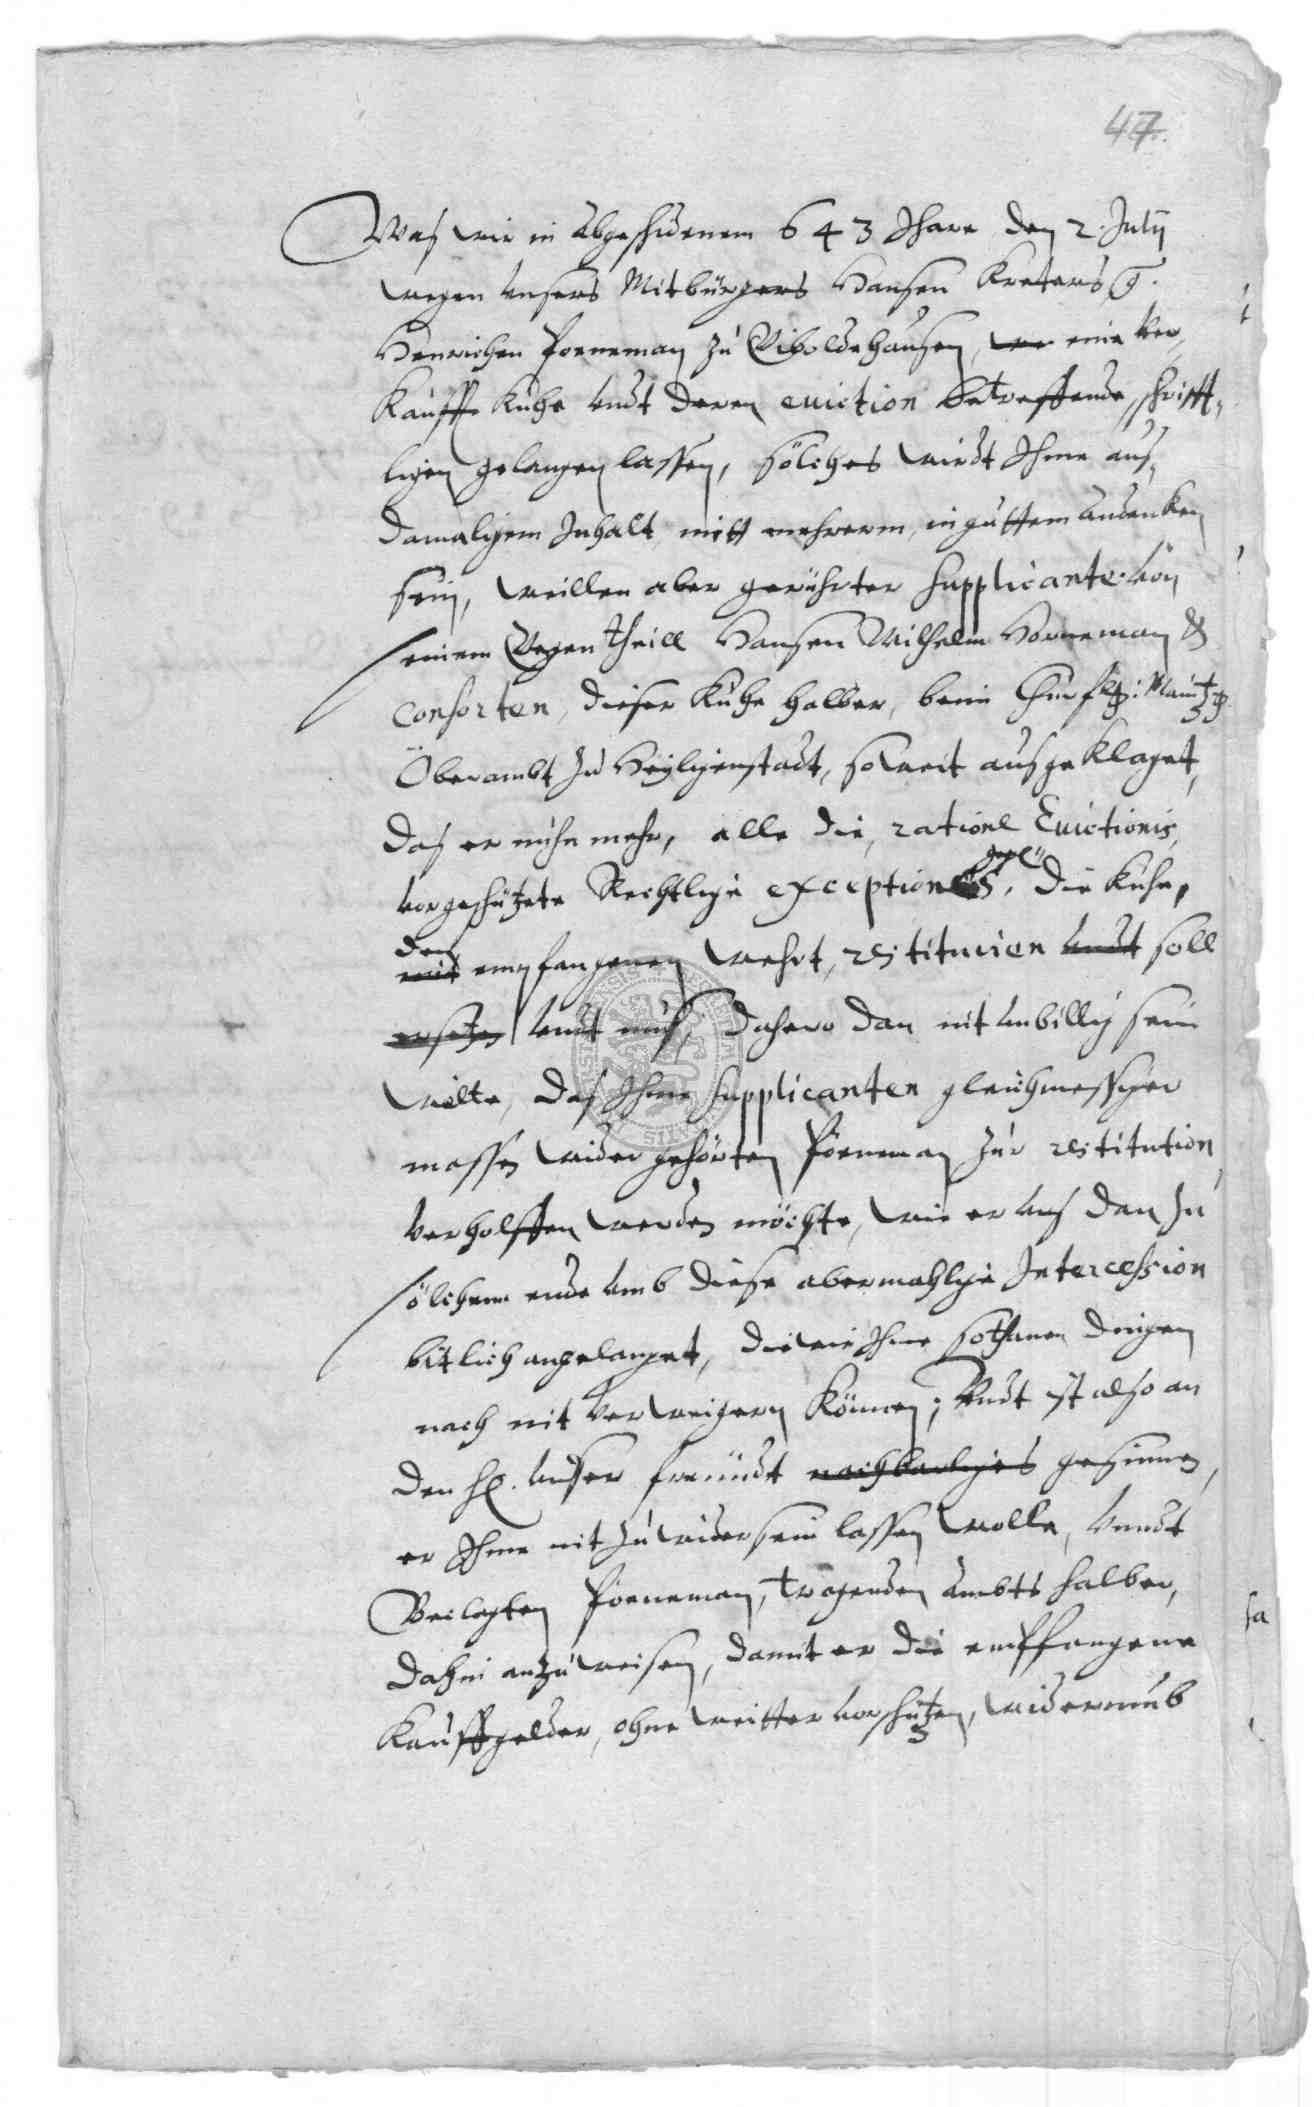 47.
Was wir in abgeschidenem 643 Jhare den 2. Julij
wegen unsers Mitbürgers Hansen Kreters
Henrichen Poeneman zu Giboldehausen, eine ver„
kauffte kuhe undt deren euiction betreffende, schrifft„
ligen gelangen lassen, sölches wirdt Ihme aus
damaligem Inhalt mitt mehrerm, in guttem andenken
sein, weillen aber gerührter supplicante von
seinem Gegentheill Hansen Wilhelm Horneman &
consorten, dieser kuhe halber, beim Churfl: Maintz:
Oberambt zu Heyligenstadt, so weit ausgeklaget,
das er nuhn mehr, alle die, ratione Euictionis,
vorgeschützete Rechtlige exceptiones, die kuhe,
den
mit empfangenen wehrt, restituiren undt soll
ersetzen undt mus, dahero dan nit unbillig sein
wölte, das Ihme supplicanten gleichmessiger
massen wider gehörten Poeneman zur restitution
verholffen werden möchte, wie er uns dan zu
sölchem ende umb diese abermahlige Intercession
bitlich angelanget, die wir Ihme sothanen dingen
nach nit verweigern können; Undt ist also an
den H. unser freundt nachbarliges gesinnen,
er Ihme nit zuwider sein lassen wolle, unndt
Beclagten Poeneman, tragenden ambts halber,
dahin anzuweisen, damit er die empffangene
kauffgelder, ohne weitter vorschützen, widerumb